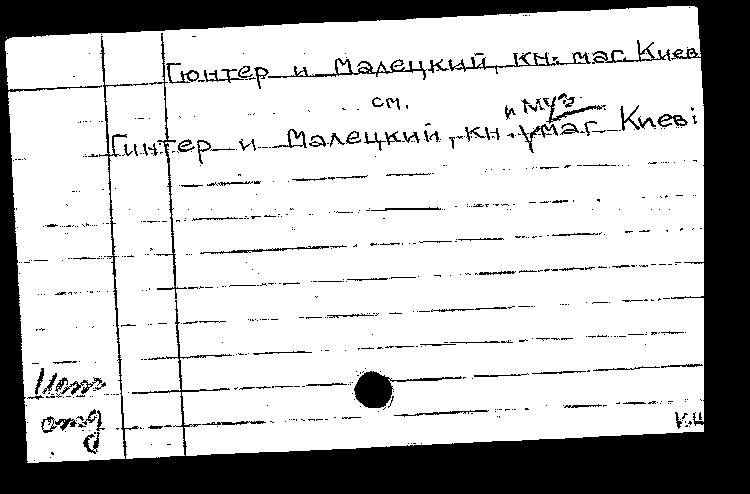 Гюнтер и Малецкий, кн. маг. Киев
см.
и муз.
Гинтер и Малецкий, кн. маг Киев:
отд